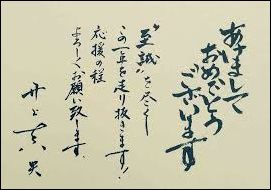 あけまして
おめでとう
ございます
"至誠"を尽くし
この一年を走り抜きます!
応援の程
よろしくお願い致します
井上真央